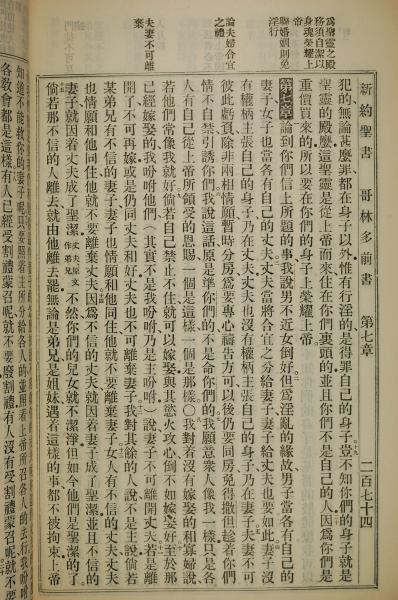 新約聖書 哥林多前書 第七章 二百七十四
為聖靈之殿
務須自潔以
身魂榮耀上
帝
聯婚姻則免
淫行
論夫婦合宜
之禮
夫妻不可離
棄
犯的無論甚麼罪都在身子以外惟有行淫的是得罪自己的身子豈不知你們的身子就是
聖靈的殿麼這聖靈是從上帝而來住在你們裏頭的並且你們不是自己的人因爲你們是
重價買來的所以要在你們的身子上榮耀上帝
第七章論到你們信上所題的事我說男不近女倒好但爲淫亂的緣故男子當各有自己的
妻子女子也當各有自己的丈夫丈夫當將合宜之分給妻子妻子給丈夫也要如此妻子沒
有權柄主張自己的身子乃在丈夫丈夫也沒有權柄主張自己的身子乃在妻子夫妻不可
彼此虧負除非兩相情願暫時分房爲要專心禱告方可以後仍要同房免得撒但趁着你們
情不自禁引誘你們我說這話原是準你們的不是命你們的我願意衆人像我一樣只是各
人有自己從上帝所領受的恩賜一個是這樣一個是那樣○我對着沒有嫁娶的和寡婦說
若他們常像我就好倘若自己禁止不住就可以嫁娶與其慾火攻心倒不如嫁娶好至於那
已經嫁娶的我吩咐他們(其實不是我吩咐乃是主吩咐)說妻子不可離開丈夫若是離
開了不可再嫁或是仍同丈夫和好丈夫也不可離棄妻子我對其餘的人說不是主說倘若
某弟兄有不信的妻子妻子也情願和他同住他就不要離棄妻子女人有不信的丈夫丈夫
也情願和他同住他就不要離棄丈夫因爲不信的丈夫就因着妻子成了聖潔並且不信的
妻子就因着丈夫成了聖潔丈夫原文作弟兄不然你們的兒女就不潔淨但如今他們是聖潔的了
倘若那不信的人離去就由他離去罷無論是弟兄是姐妹遇着這樣的事都不被拘束上帝
知道不能救你的妻子呢只要照着主所分給各人的並照着上帝所召各人的去行我吩咐
各教會都是這樣有人已經受割禮蒙召呢就不要廢割禮有人沒有受割禮蒙召呢就不要